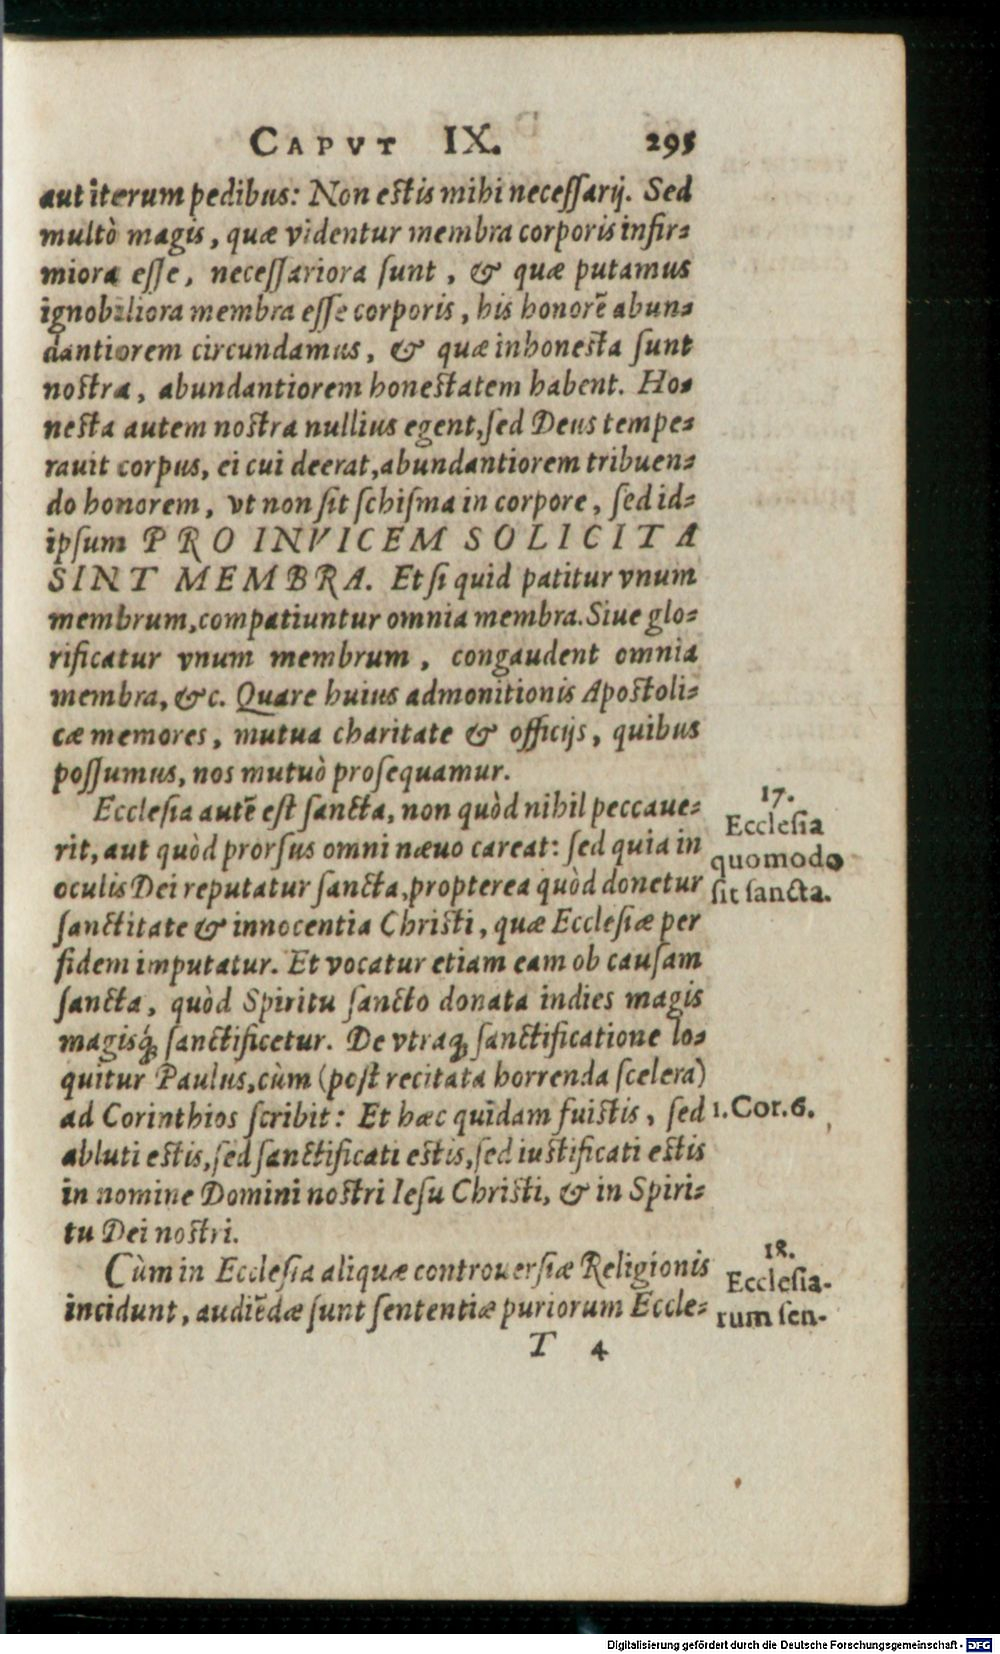 CAPVT IX. 295
aut iterum pedibus: Non estis mihi necessarij. Sed
multò magis, quæ videntur membra corporis infir=
miora esse, necessariora sunt, & quæ putamus
ignobiliora membra esse corporis, his honorē abun=
dantiorem circundamus, & quæ inhonesta sunt
nostra, abundantiorem honestatem habent. Ho=
nesta autem nostra nullius egent, sed Deus tempe=
rauit corpus, ei cui deerat, abundantiorem tribuen=
do honorem, vt non sit schisma in corpore, sed id=
ipsum PRO INVICEM SOLICITA
SINT MEMBRA. Et si quid patitur vnum
membrum, compatiuntur omnia membra. Siue glo=
rificatur vnum membrum, congaudent omnia
membra, &c. Quare huius admonitionis Apostoli=
cæ memores, mutua charitate & officijs, quibus
possumus, nos mutuò prosequamur.
Ecclesia autē est sancta, non quòd nihil peccaue=
rit, aut quòd prorsus omni næuo careat: sed quia in
oculis Dei reputatur sancta, propterea quòd donetur
sanctitate & innocentia Christi, quæ Ecclesiæ per
fidem imputatur. Et vocatur etiam eam ob causam
sancta, quòd Spiritu sancto donata indies magis
magisq́; sanctificetur. De vtraq; sanctificatione lo=
quitur Paulus, cùm (post recitata horrenda scelera)
ad Corinthios scribit: Et hæc quidam fuistis, sed
abluti estis, sed sanctificati estis, sed iustificati estis
in nomine Domini nostri Iesu Christi, & in Spiri=
tu Dei nostri.
Cùm in Ecclesia aliquæ controuersiæ Religionis
incidunt, audiēdæ sunt sententiæ puriorum Eccle=
T 4
17.
Ecclesia
quomodo
sit sancta.
1. Cor. 6.
18.
Ecclesia-
rum sen-
Digitalisierung gefördert durch die Deutsche Forschungsgemeinschaft - DFG